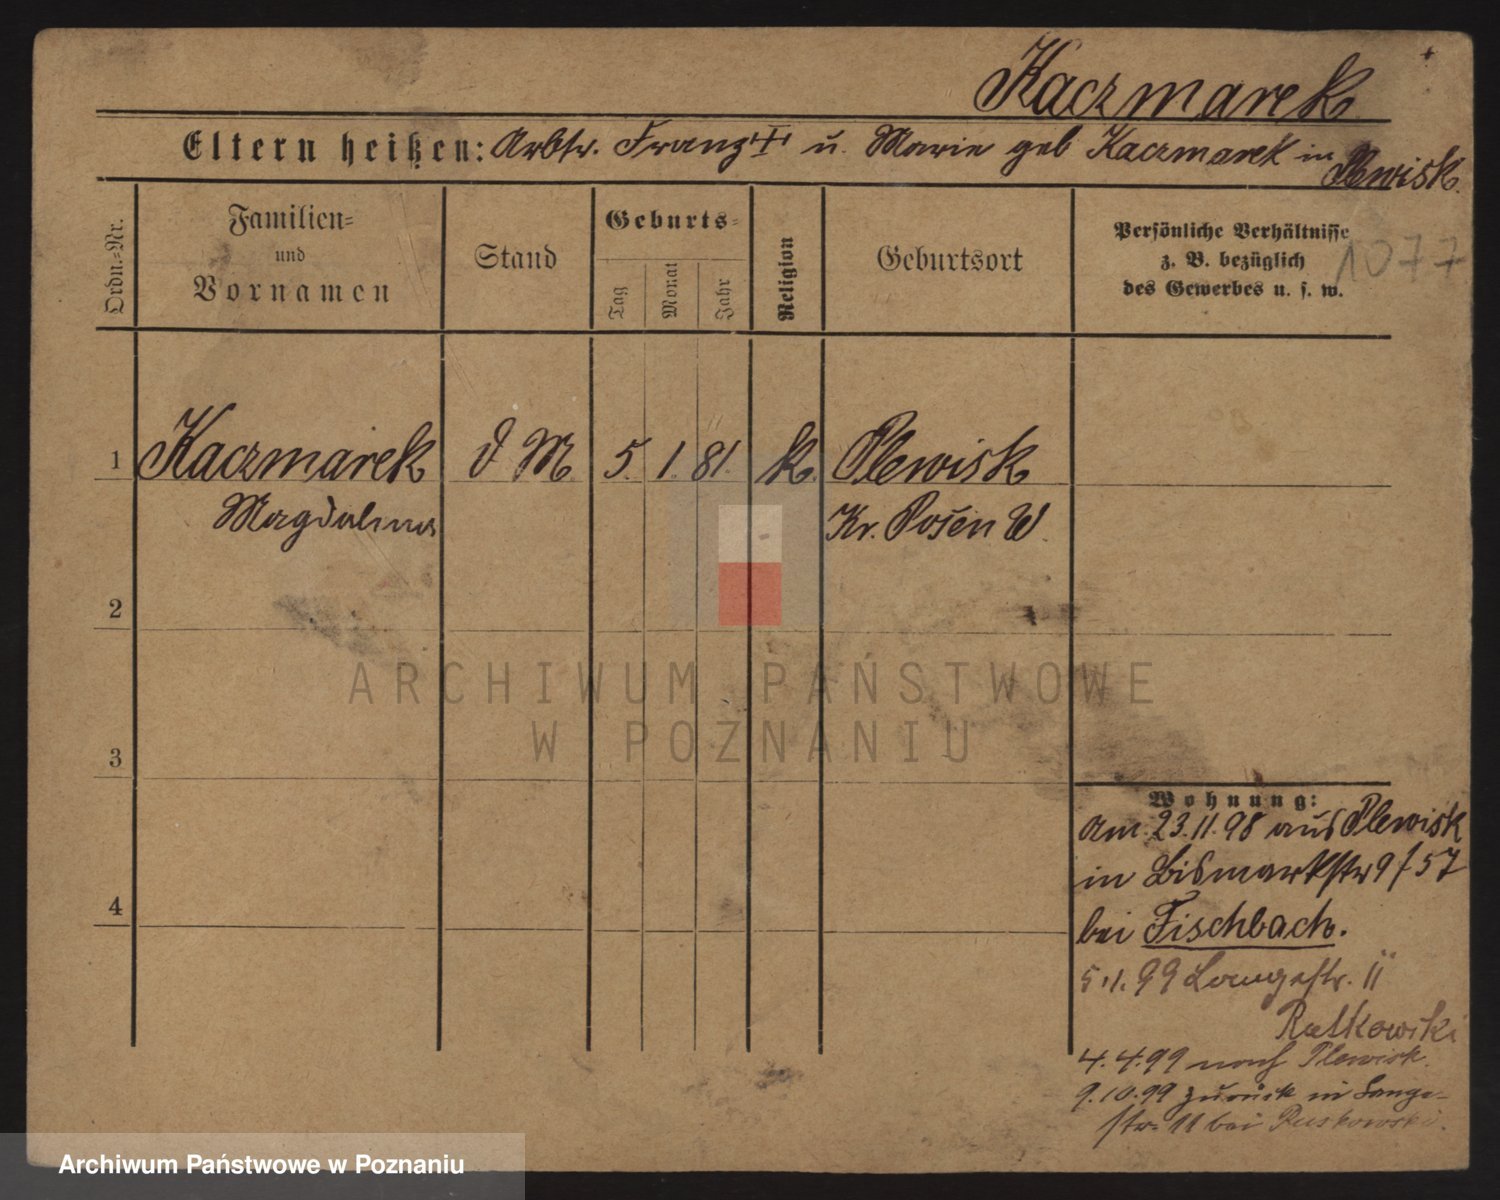 Kaczmarek
Eltern heißen: Arbtr. Franz † u. Marie geb Kaczmarek in Plewisk.
Ordn.-Nr.
Familien-
und
Vornamen
Stand
Geburts-
Tag
Monat
Jahr
Religion
Geburtsort
Persönliche Verhältnisse
z. B. bezüglich
des Gewerbes u. s. w.
1077
1 Kaczmarek d M 5. 1. 81. k. Plewisk
Magdalena Kr. Posen W.
2
3
4
ARCHIWUM PAŃSTWOWE
W POZNANIU
Wohnung:
am 23.11.98 aus Plewisk
in Bismarkstr 9 / 57
bei Fischbach.
5.1.99 Langestr. 11
Ratkowski
4.4.99 nach Plewisk.
9.10.99 zurück in Lange-
str. 11 bei
Archiwum Państwowe w Poznaniu